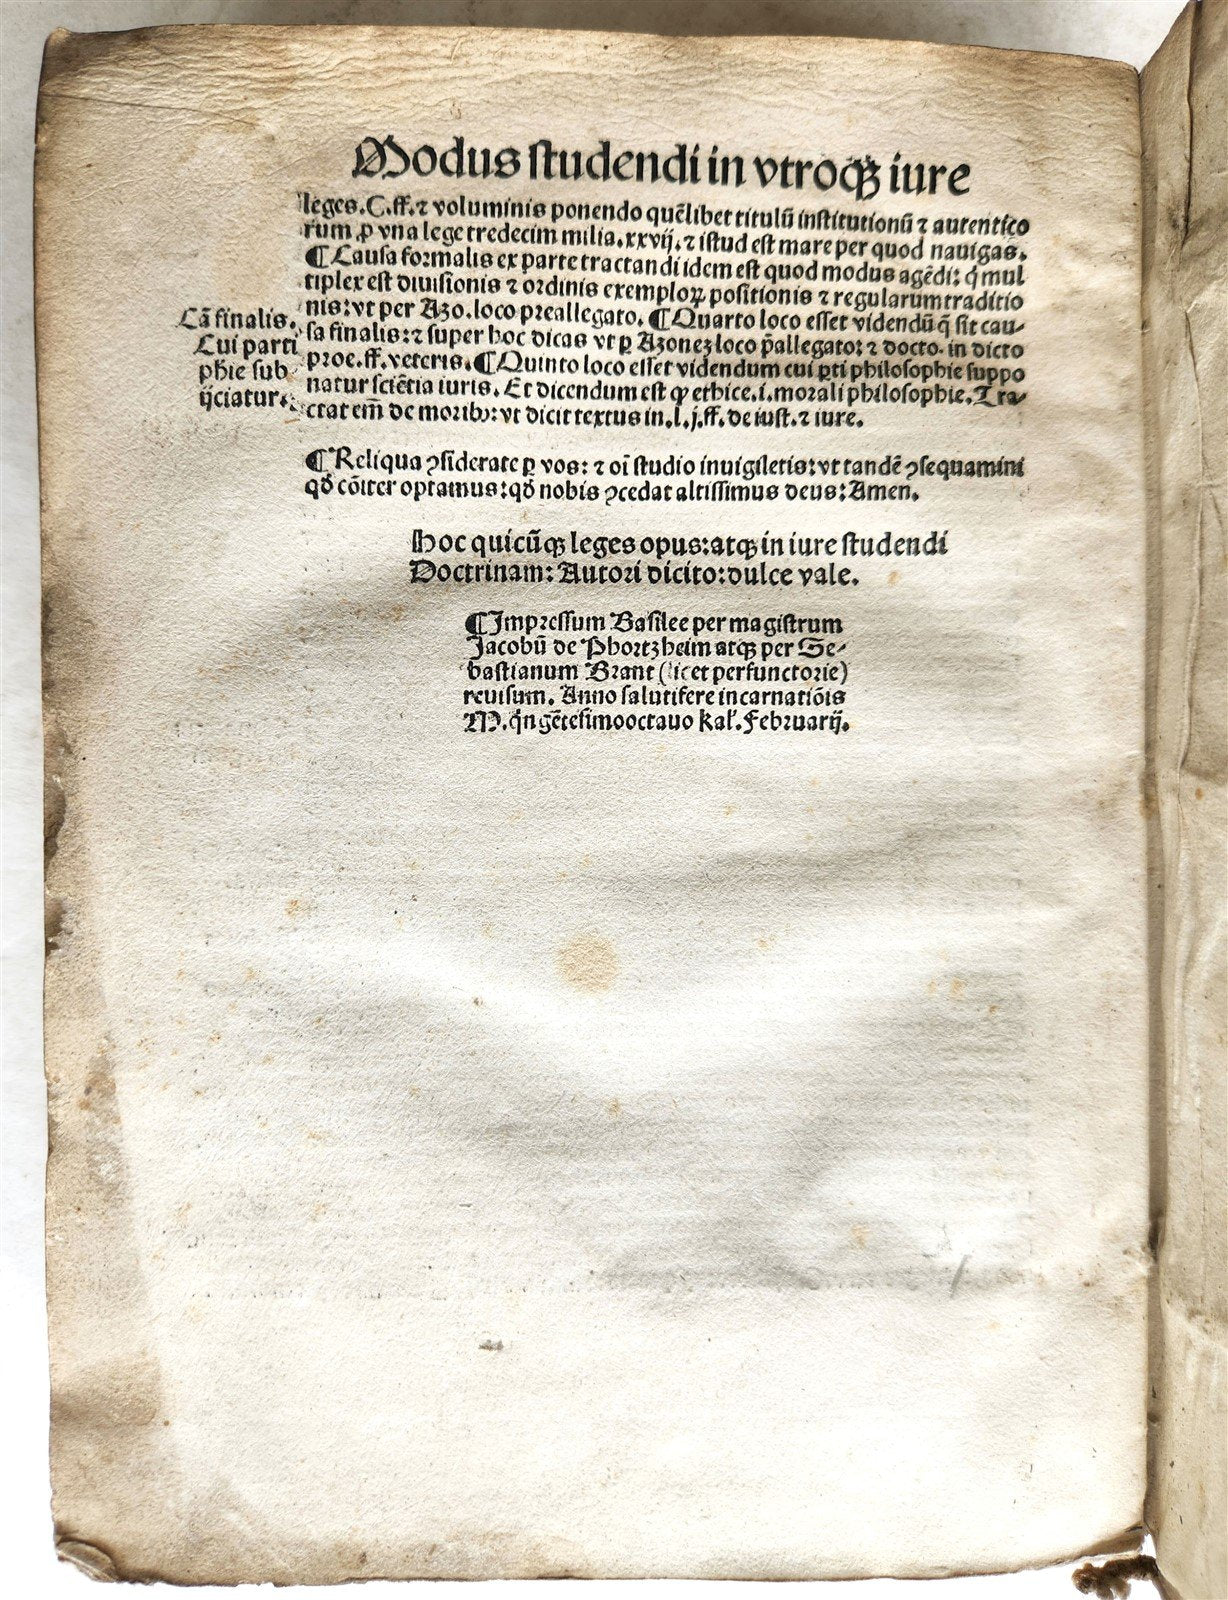 Modus studendi in vtroqꝫ iure
leges. C. ff. ⁊ voluminis ponendo quēlibet titulū institutionū ⁊ autentico
rum ꝑ vna lege tredecim milia. xxvij. ⁊ istud est mare per quod nauigas.
¶ Causa formalis ex parte tractandi idem est quod modus agēdi: q̇ mul
tiplex est diuisionis ⁊ ordinis exemploꝝ positionis ⁊ regularum traditio
nis: vt per Azo. loco preallegato. ¶ Quarto loco esset videndū q̄ sit cau-
Cā finalis.
sa finalis: ⁊ super hoc dicas vt ꝑ Azonez loco p̄allegato: ⁊ docto. in dicto
Cui parti
proe. ff. veteris. ¶ Quinto loco esset videndum cui ꝑti philosophie suppo
phie sub
natur sciētia iuris. Et dicendum est ꝙ ethice. i. morali philosophie. Tra-
ijciatur.
ctat em̄ de moribꝰ: vt dicit textus in. l. j. ff. de iust. ⁊ iure.
¶ Reliqua ꝯsiderate ꝑ vos: ⁊ oī studio inuigiletis: vt tandē ꝯsequamini
qđ cōiter optamus: qđ nobis ꝯcedat altissimus deus: Amen.
Hoc quicūqꝫ leges opus: atqꝫ in iure studendi
Doctrinam: Autori dicito: dulce vale.
¶ Impressum Basilee per magistrum
Jacobū de Phortzheim atqꝫ per Se-
bastianum Brant (licet perfunctorie)
reuisum. Anno salutifere incarnatiōis
M. q̇ngētesimooctauo kal'. Februarij.